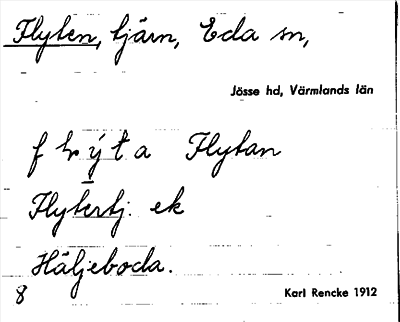 Flyten, tjärn, Eda sn,
Jösse hd, Värmlands län
Flytan
Flytertj. ek
Häljeboda.
8
Karl Rencke 1912